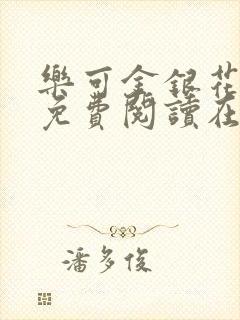 樂可金銀花
免費閱讀在
潘多俊